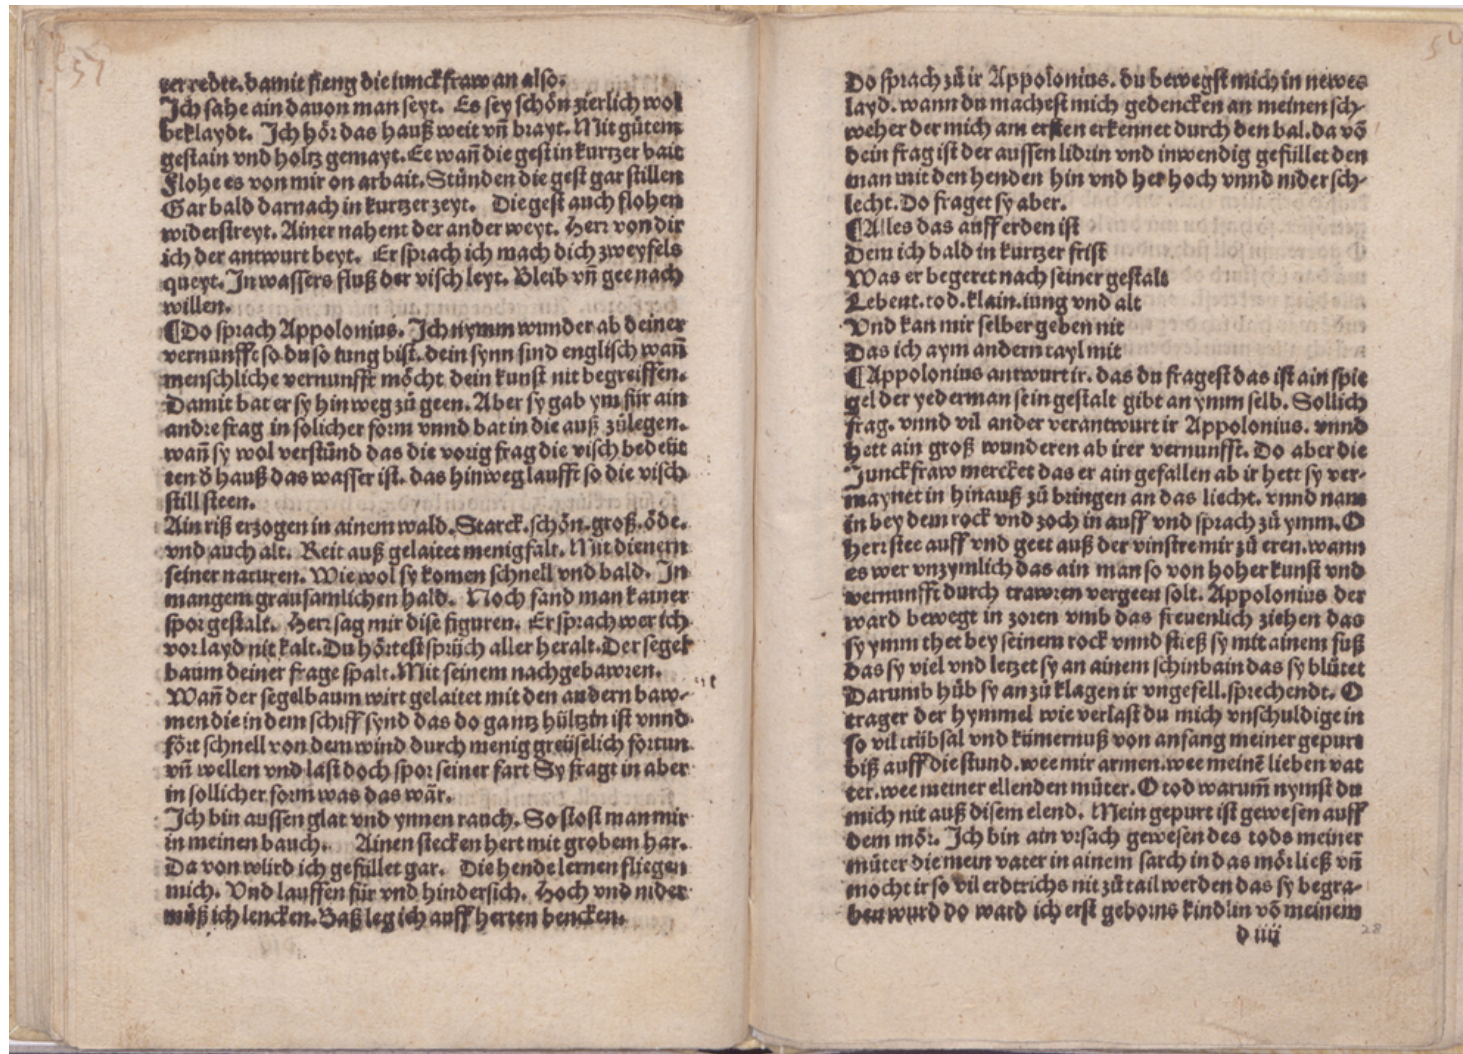 57
ter redte. damit fieng die iunckfraw an also.
Ich sahe ain dauon man seyt. Es sey schön zierlich wol
beklaydt. Ich hör das hauß weit vn̄ brayt. Mit gůtem
gestain vnd holtz gemayt. Ee wan̄ die gest in kurtzer bait
Flohe es von mir on arbait. Stůnden die gest gar stillen
Gar bald darnach in kurtzer zeyt. Die gest auch flohen
widerstreyt. Ainer nahent der ander weyt. Herr von dir
ich der antwurt beyt. Er sprach ich mach dich zweyfels
queyt. In wassers fluß der visch leyt. Bleib vn̄ gee nach
willen.
¶Do sprach Appolonius. Ich nymm wunder ab deiner
vernunfft so du so iung bist. dein synn sind englisch wan̄
menschliche vernunfft möcht dein kunst nit begreiffen.
Damit bat er sy hin weg zů geen. Aber sy gab ym für ain
andre frag in solicher form vnnd bat in die auß zůlegen.
wan̄ sy wol verstůnd das die vorig frag die visch bedeüt
ten d̄ hauß das wasser ist. das hinweg laufft so die visch
still steen.
Ain riß erzogen in ainem wald. Starck. schön. groß. öde.
vnd auch alt. Reit auß gelaitet menigfalt. Mit dienern
seiner naturen. Wie wol sy komen schnell vnd bald. In
mangem grausamlichen hald. Noch fand man kainer
spor gestalt. Herr sag mir dise figuren. Er sprach wer ich
vor layd nit kalt. Du hörtest sprüch aller heralt. Der segel
baum deiner frage spalt. Mit seinem nachgebawren.
Wan̄ der segelbaum wirt gelaitet mit den andern baw-
men die in dem schiff synd das do gantz hültzin ist vnnd
fört schnell von dem wind durch menig greüselich fortun
vn̄ wellen vnd last doch spor seiner fart Sy fragt in aber
in sollicher form was das wär.
Ich bin aussen glat vnd ynnen rauch. So stost man mir
in meinen bauch. Ainen stecken hert mit grobem har.
Da von würd ich gefüllet gar. Die hende lernen fliegen
mich. Vnd lauffen für vnd hindersich. Hoch vnd nider
můß ich lencken. Baß leg ich auff herten bencken.
Do sprach zů ir Appolonius. du bewegst mich in newes
layd. wann du machest mich gedencken an meinen sch-
weher der mich am ersten erkennet durch den bal. da vō
dein frag ist der aussen lidrin vnd inwendig gefüllet den
man mit den henden hin vnd her hoch vnnd nider sch-
lecht. Do fraget sy aber.
¶Alles das auff erden ist
Dem ich bald in kurtzer frist
Was er begeret nach seiner gestalt
Lebent. tod. klain. iung vnd alt
Vnd kan mir selber geben nit
Das ich aym andern tayl mit
¶Appolonius antwurt ir. das du fragest das ist ain spie
gel der yederman sein gestalt gibt an ymm selb. Sollich
frag. vnnd vil ander verantwurt ir Appolonius. vnnd
hett ain groß wunderen ab irer vernunfft. Do aber die
Junckfraw mercket das er ain gefallen ab ir hett sy ver-
maynet in hinauß zů bringen an das liecht. vnnd nam
in bey dem rock vnd zoch in auff vnd sprach zů ymm. O
herr stee auff vnd geet auß der vinstre mir zů eren. wann
es wer vnzymlich das ain man so von hoher kunst vnd
vernunfft durch trawren vergeen solt. Appolonius der
ward bewegt in zoren vmb das freuenlich ziehen das
sy ymm thet bey seinem rock vnnd stieß sy mit ainem fůß
das sy viel vnd letzet sy an ainem schinbain das sy blůtet
Darumb hůb sy an zů klagen ir vngefell. sprechendt. O
trager der hymmel wie verlast du mich vnschuldige in
so vil trübsal vnd kümernuß von anfang meiner gepurt
biß auff die stund. wee mir armen. wee meinē lieben vat
ter. wee meiner ellenden můter. O tod warum̄ nymst du
mich nit auß disem elend. Mein gepurt ist gewesen auff
dem mör. Ich bin ain vrsach gewesen des tods meiner
můter die mein vater in ainem sarch in das mör ließ vn̄
mocht ir so vil erdtrichs nit zů tail werden das sy begra-
ben wurd do ward ich erst geborns kindlin vō meinem
d iiij
28